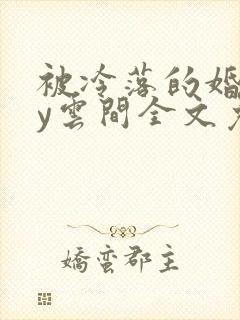 被冷落的婚
y雲間全文
嬌蠻郡主